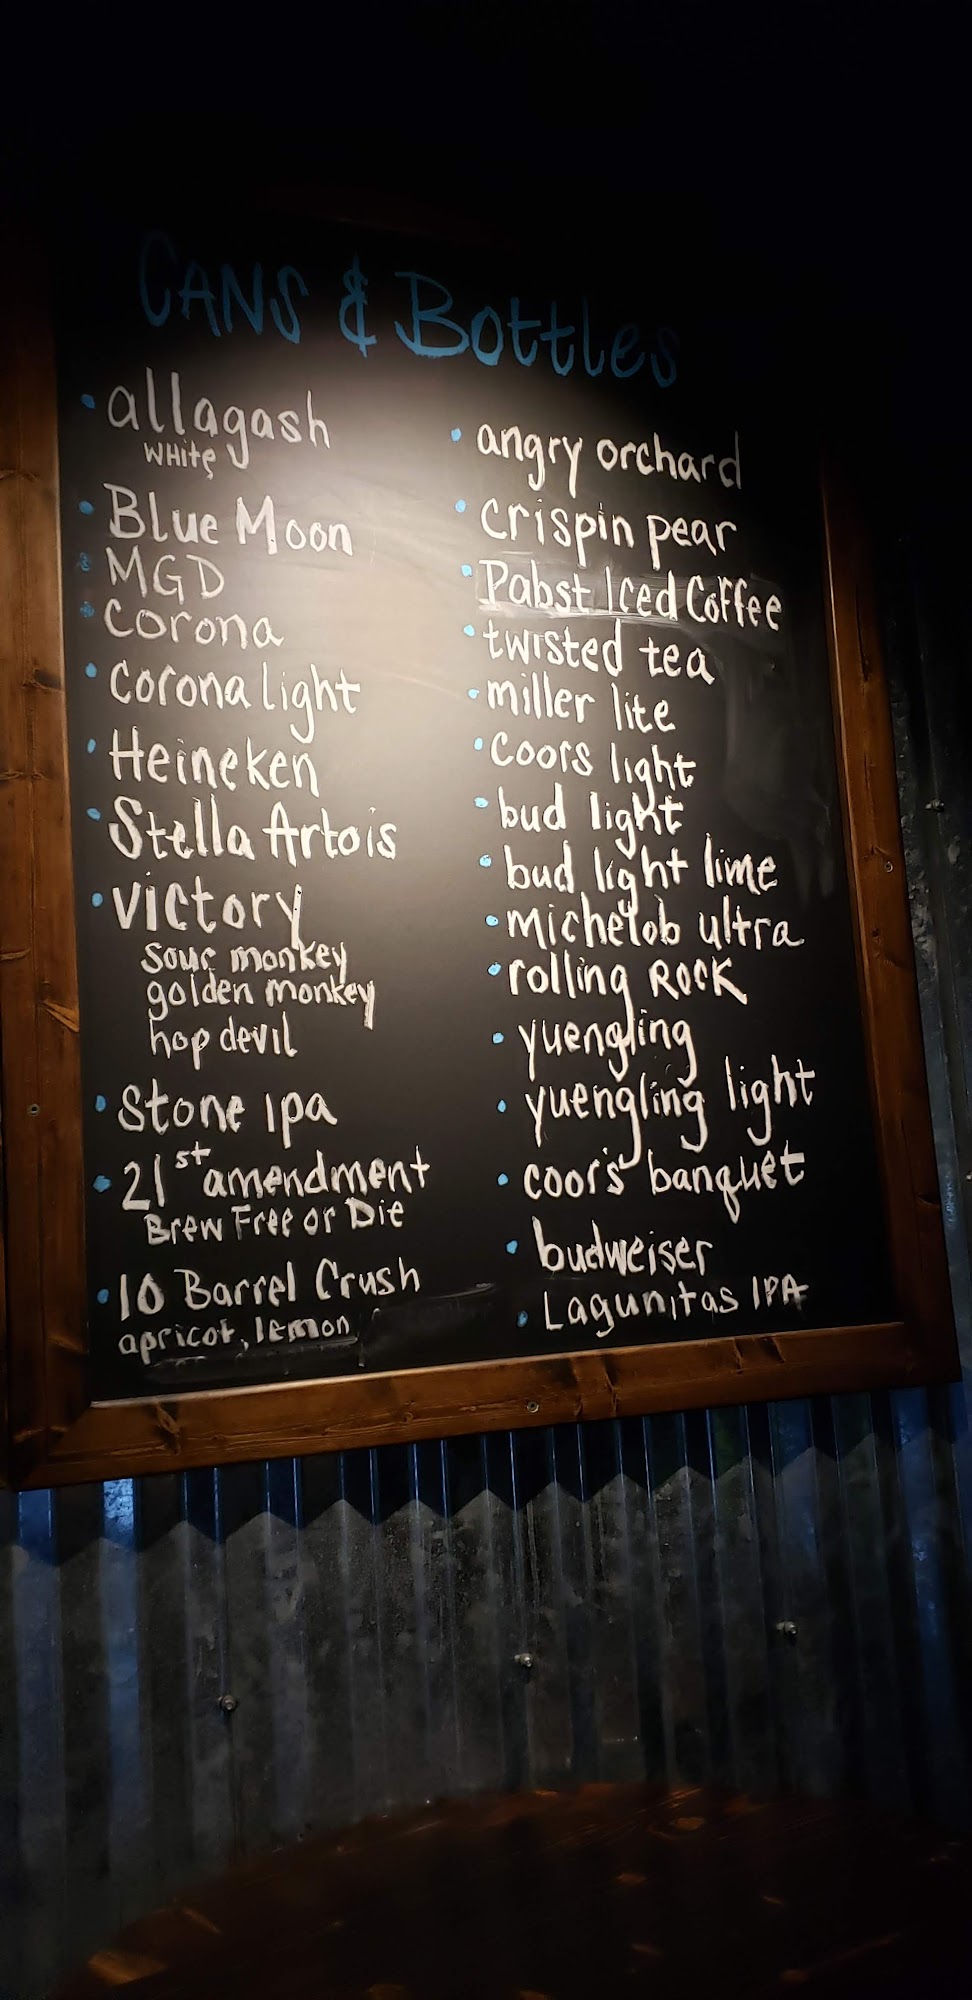 CANS & Bottles
allagash
WHite
Blue Moon
MGD
Corona
Corona light
Heineken
Stella Artois
victory
sour monkey
golden monkey
hop devil
Stone ipa
21st amendment
Brew Free or Die
10 Barrel Crush
apricot, lemon
angry orchard
Crispin pear
Pabst Iced Coffee
twisted tea
miller lite
Coors light
bud light
bud light lime
michelob ultra
rolling Rock
yuengling
yuengling light
coor's banquet
budweiser
Lagunitas IPA